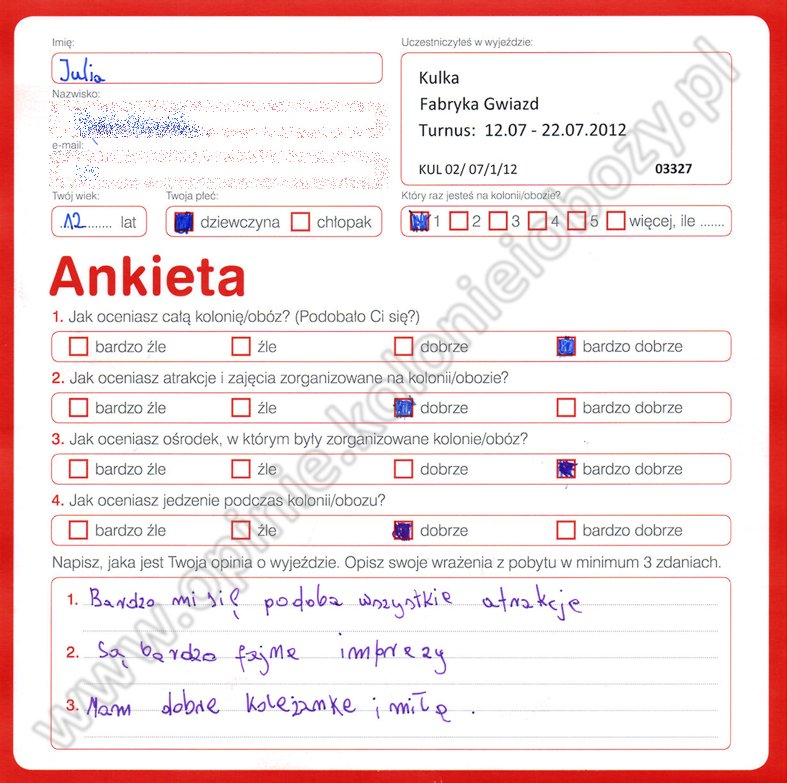 Imię:
Uczestniczyłeś w wyjeździe:
Julia
Kulka
Nazwisko:
Fabryka Gwiazd
Turnus: 12.07 - 22.07.2012
e-mail:
KUL 02/ 07/1/12 03327
Twój wiek: Twoja płeć: Który raz jesteś na kolonii/obozie?
.12....... lat dziewczyna chłopak 1 2 3 4 5 więcej, ile .......
Ankieta
1. Jak oceniasz całą kolonię/obóz? (Podobało Ci się?)
bardzo źle źle dobrze bardzo dobrze
2. Jak oceniasz atrakcje i zajęcia zorganizowane na kolonii/obozie?
bardzo źle źle dobrze bardzo dobrze
3. Jak oceniasz ośrodek, w którym były zorganizowane kolonie/obóz?
bardzo źle źle dobrze bardzo dobrze
4. Jak oceniasz jedzenie podczas kolonii/obozu?
bardzo źle źle dobrze bardzo dobrze
Napisz, jaka jest Twoja opinia o wyjeździe. Opisz swoje wrażenia z pobytu w minimum 3 zdaniach.
1. Bardzo mi się podoba wszystkie atrakcje
2. Są bardzo fajne imprezy
3. Mam dobre koleżanke i miłę .
www.opinie.kolonieiobozy.pl